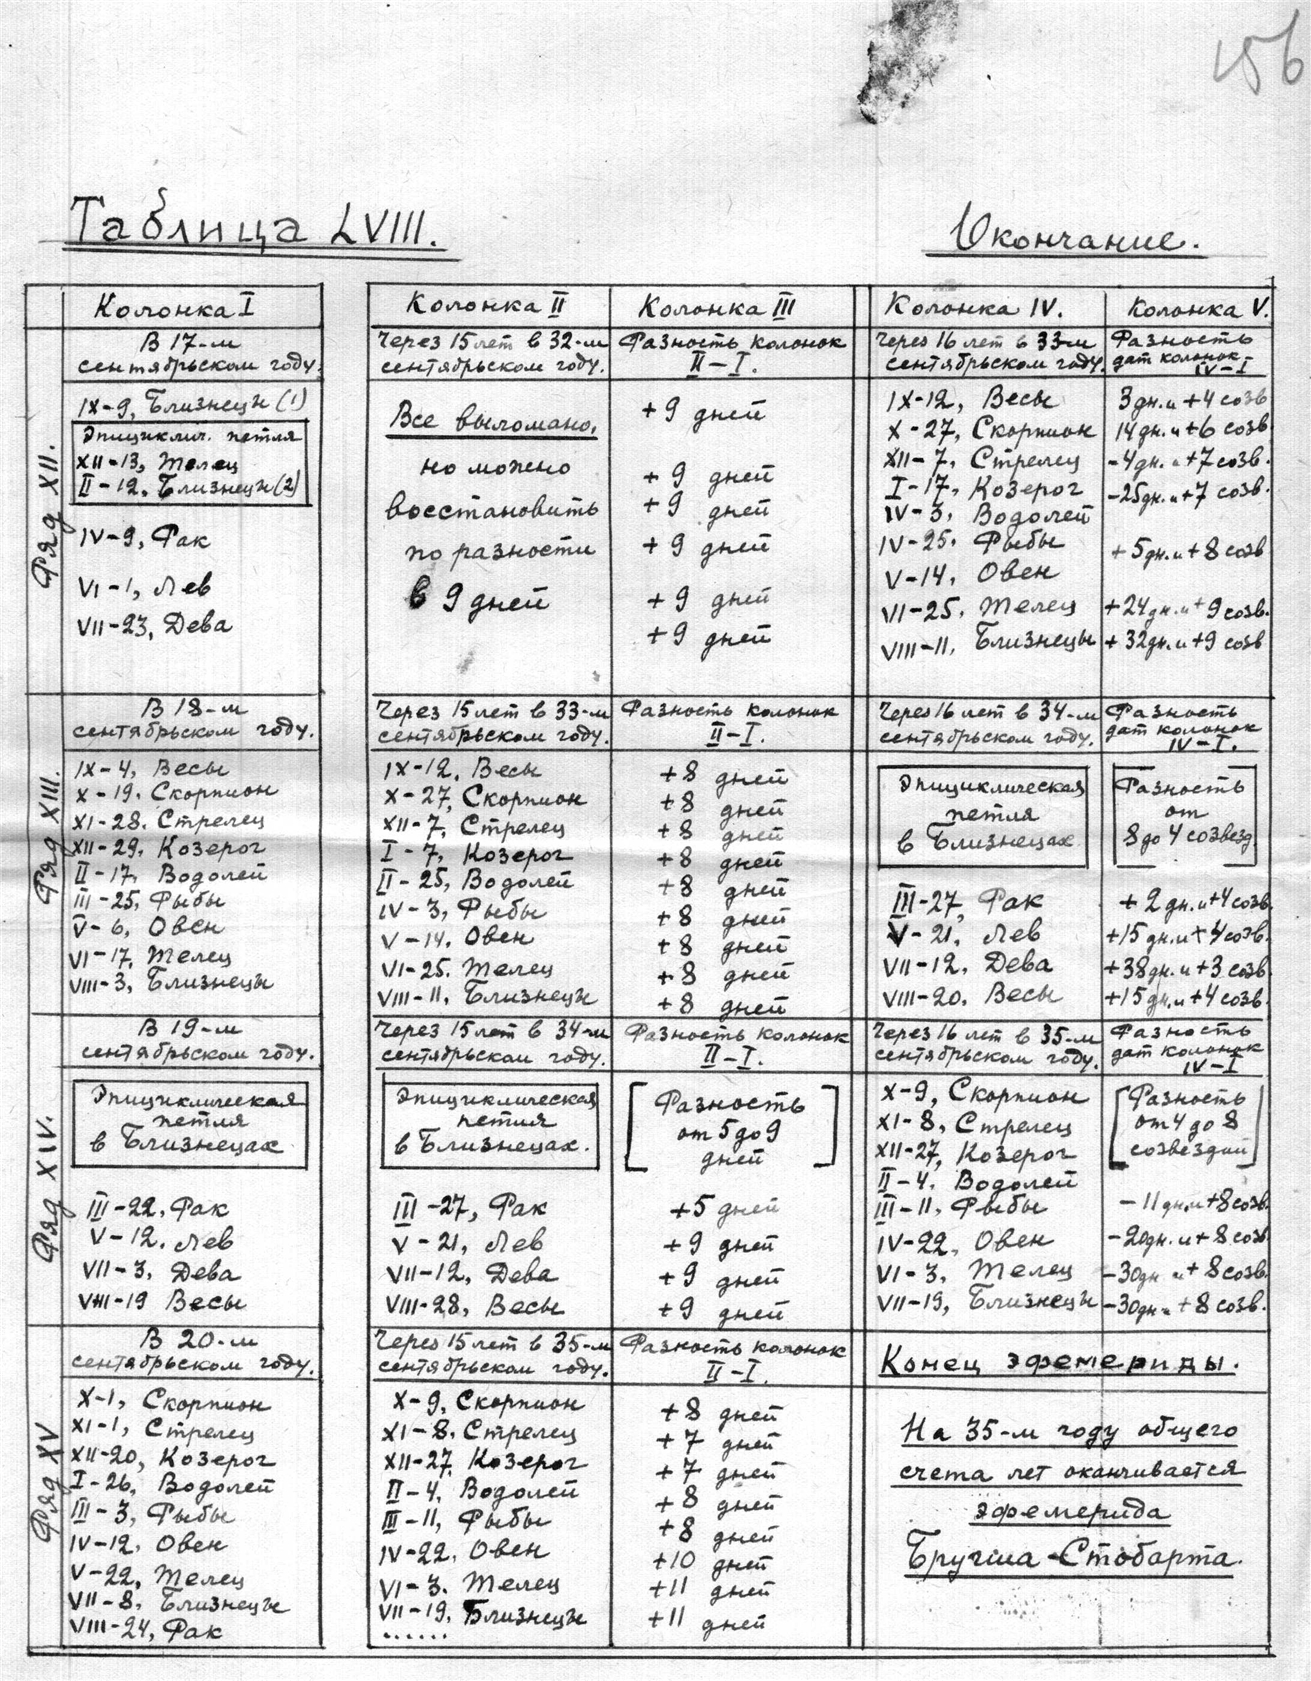 156
Таблица LVIII.
Окончание.
Колонка I
Колонка II
Колонка III
Колонка IV.
Колонка V.
Ряд XII.
В 17-м
сентябрьском году.
Через 15 лет в 32-м
сентябрьском году.
Разность колонок
II-I.
Через 16 лет в 33-м
сентябрьском году.
Разность
дат колонок
IV-I
IX-9, Близнецы (1)
Эпициклич. петля
XII-13, Телец
II-12, Близнецы (2)
IV-9, Рак
VI-1, Лев
VII-23, Дева
Все выломано,
но можено
восстановить
по разности
в 9 дней
+9 дней
+9 дней
+9 дней
+9 дней
+9 дней
+9 дней
IX-12, Весы
X-27, Скорпион
XII-7, Стрелец
I-17, Козерог
IV-3, Водолей
IV-25. Рыбы
V-14. Овен
VI-25. Телец
VIII-11. Близнецы
3 дн. и +4 созв
14 дн. и +6 созв.
-4 дн. и +7 созв.
-25 дн. и +7 созв.
+5 дн. и +8 созв
+24 дн. и +9 созв.
+32 дн. и +9 созв
Ряд XIII.
В 18-м
сентябрьском году.
Через 15 лет в 33-м
сентябрьском году.
Разность колонок
II-I.
Через 16 лет в 34-м
сентябрьском году.
Разность
дат колонок
IV-I.
IX-4, Весы
X-19. Скорпион
XI-28. Стрелец
XII-29. Козерог
II-17. Водолей
III-25, Рыбы
V-6, Овен
VI-17, Телец
VIII-3, Близнецы
IX-12. Весы
X-27, Скорпион
XII-7, Стрелец
I-7, Козерог
II-25, Водолей
IV-3, Рыбы
V-14. Овен
VI-25. Телец
VIII-11. Близнецы
+8 дней
+8 дней
+8 дней
+8 дней
+8 дней
+8 дней
+8 дней
+8 дней
+8 дней
Эпициклическая
петля
в Близнецах
III-27, Рак
V-21, Лев
VII-12, Дева
VIII-20. Весы
Разность
от
8 до 4 созвезд.
+2 дн. и +4 созв.
+15 дн. и +4 созв.
+38 дн. и +3 созв.
+15 дн. и +4 созв.
Ряд XIV.
В 19-м
сентябрьском году.
Через 15 лет в 34-м
сентябрьском году.
Разность колонок
II-I.
Через 16 лет в 35-м
сентябрьском году.
Разность
дат колонок
IV-I
Эпициклическая
петля
в Близнецах
III-22, Рак
V-12. Лев
VII-3, Дева
VIII-19 Весы
Эпициклическая
петля
в Близнецах.
III-27, Рак
V-21, Лев
VII-12, Дева
VIII-28, Весы
Разность
от 5 до 9
дней
+5 дней
+9 дней
+9 дней
+9 дней
X-9, Скорпион
XI-8, Стрелец
XII-27, Козерог
II-4. Водолей
III-11, Рыбы
IV-22, Овен
VI-3, Телец
VII-19, Близнецы
Разность
от 4 до 8
созвездий
-11 дн. и +8 созв.
-20 дн. и +8 созв.
-30 дн и +8 созв.
-30 дн и +8 созв.
Ряд XV
В 20-м
сентябрьском году.
Через 15 лет в 35-м
сентябрьском году.
Разность колонок
II-I.
Конец эфемериды.
X-1, Скорпион
XI-1, Стрелец
XII-20, Козерог
I-26, Водолей
III-3, Рыбы
IV-12, Овен
V-22, Телец
VII-8, Близнецы
VIII-24, Рак
X-9, Скорпион
XI-8. Стрелец
XII-27. Козерог
II-4, Водолей
III-11, Рыбы
IV-22. Овен
VI-3. Телец
VII-19, Близнецы
......
+8 дней
+7 дней
+7 дней
+8 дней
+8 дней
+10 дней
+11 дней
+11 дней
На 35-м году общего
счета лет оканчивается
эфемерида
Бругша-Стобарта.